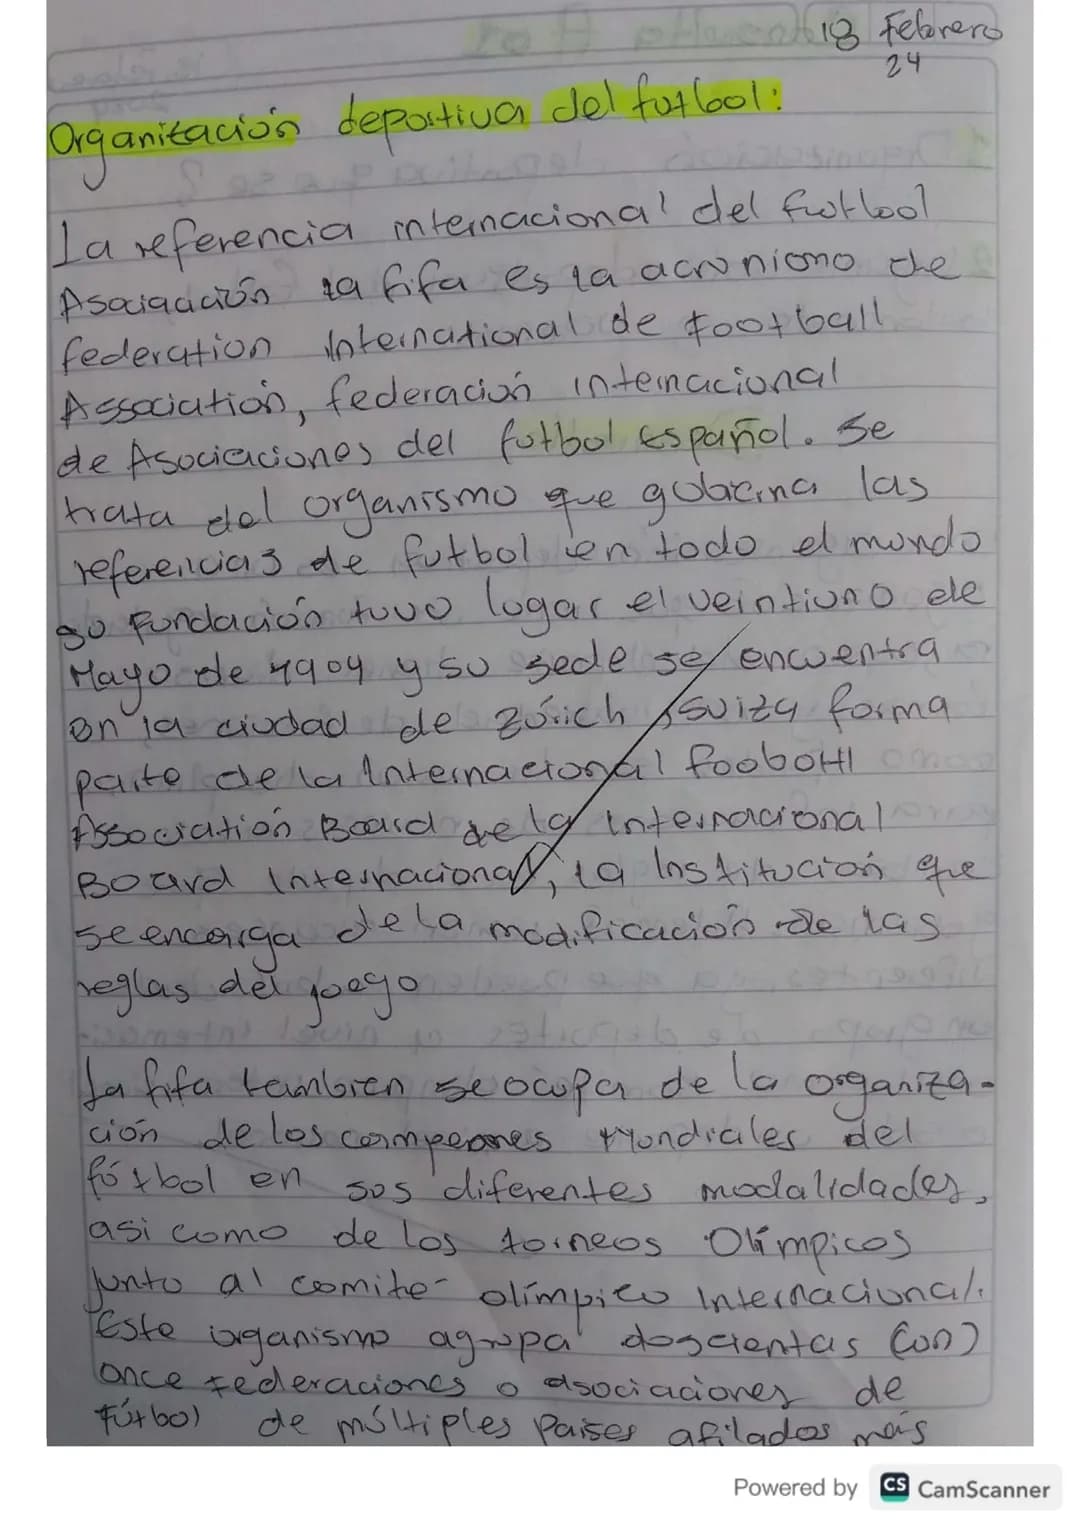 18 Febrero
24
Organización deportiva del futbol:
La referencia internacional del futbol
Asociación la fifa es la acroniomo de
federation International de Football
Association, federación internacional
de Asociaciones del futbol español. Se
trata del organismo que gobierna las
referencias de futbol en todo el mundo
su Fundación tuvo lugar el veintiuno de
Mayo de 1904 y su sede se encuentra
en la ciudad de Zúrich, Suiza forma
parte de la Internacional foobotl
Association Board de la internacional
Board Internacional, la Institución que
se encarga de la modificación de las
reglas del juego
La fifa tambien se ocupa de la organiza-
ción de los campeones Mundiales del
fútbol en sus diferentes modalidades,
asi como de los torneos Olímpicos
Junto al comite olímpico Internacional.
Este organismo agrupa doscientas (con)
once Federaciones o asociaciones de
Fútbol de múltiples Paises afilados más
Powered by CS CamScanner